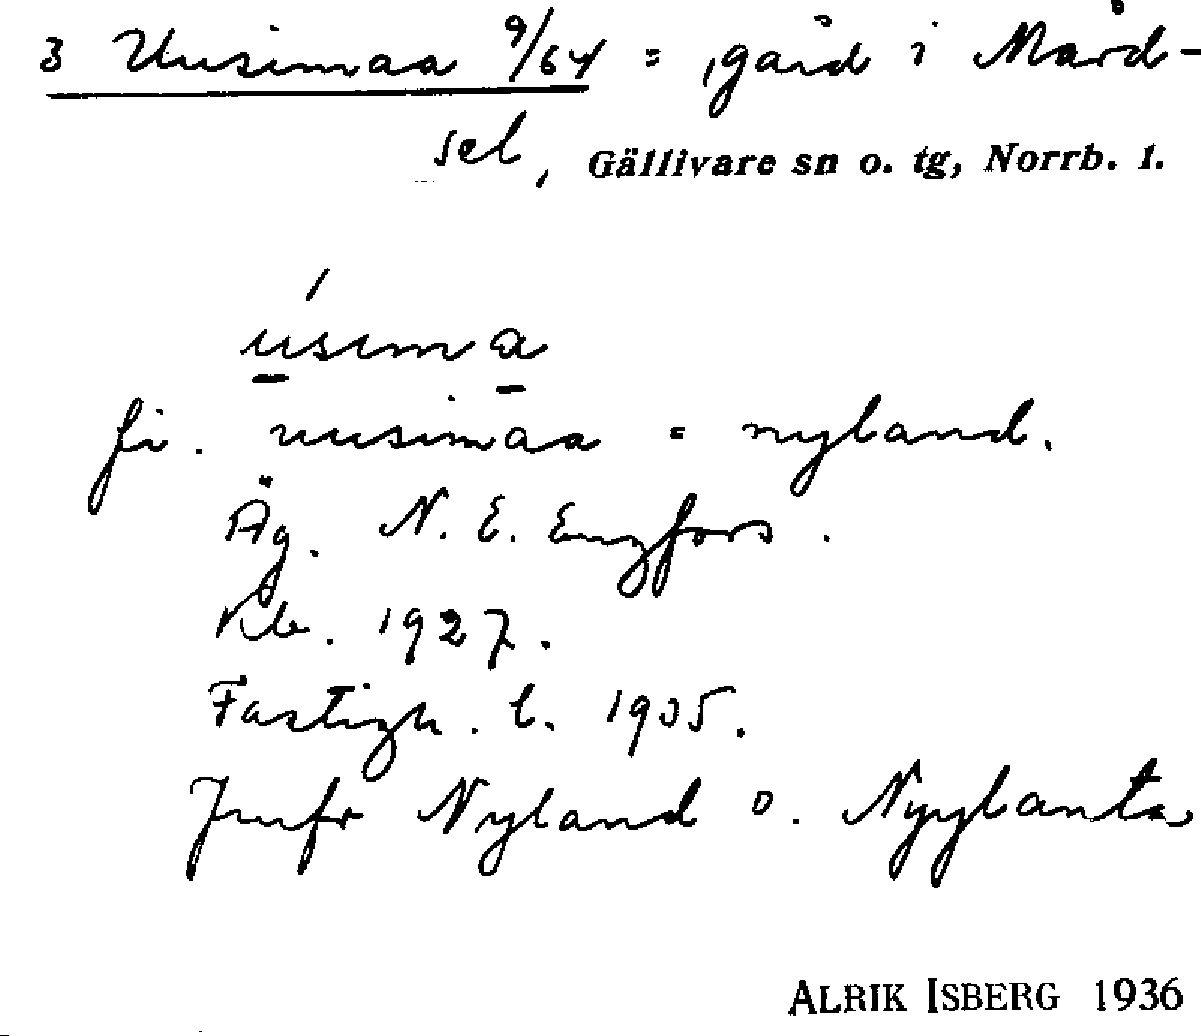 3 Uusimaa 9/64 = gård i Mård-
sel, Gällivare sn o. tg, Norrb. l.
úsima
fi. uusimaa = nyland.
Äg. N. E. Engfors.
1927.
Fastigh. l. 1935.
Jmfr Nyland o. Nyylanta
ALRIK ISBERG 1936